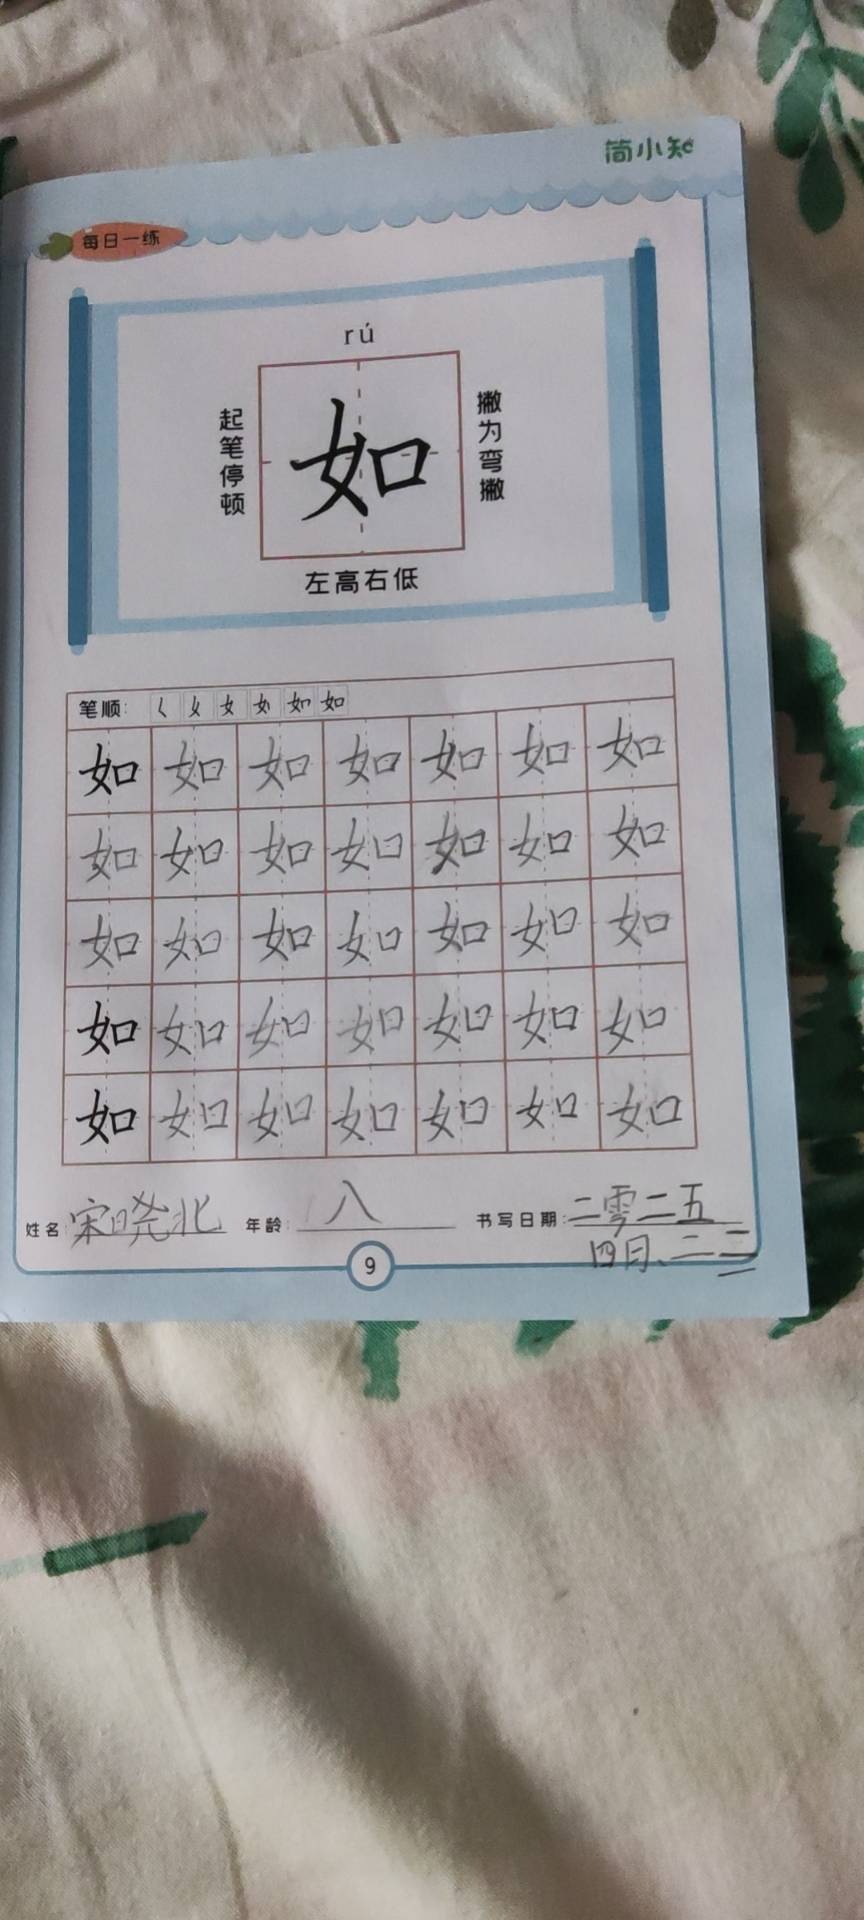 简小知
每日一练
rú
起笔停顿
如
撇为弯撇
左高右低
笔顺: 𡿨 女 女 如 如 如
如 如 如 如 如 如 如
如 如 如 如 如 如 如
如 如 如 如 如 如 如
如 如 如 如 如 如 如
如 如 如 如 如 如 如
姓名: 宋晓北 年龄: 八 书写日期: 二零二五
四月、二三
9